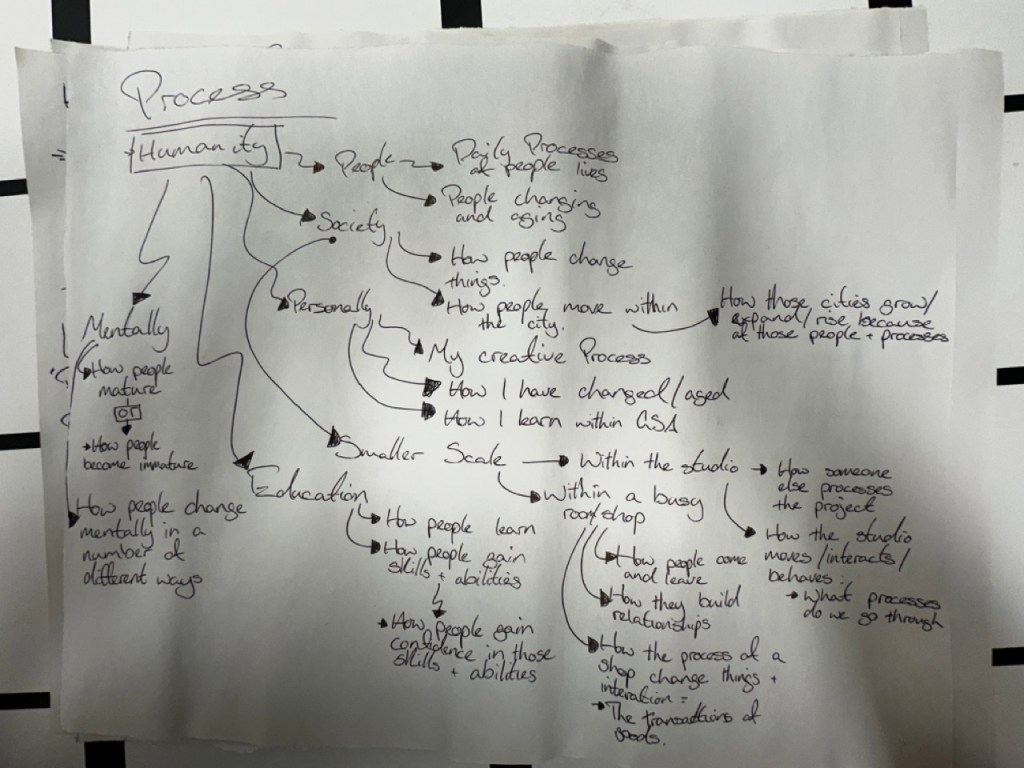 Process
Humanity
People
Daily Processes
of people lives
People changing
and aging
Society
How people change
things.
How people move within
the city.
How those cities grow/
expand/rise because
of those people + processes
Personally
My creative Process
How I have changed/aged
How I learn within GSA
Mentally
How people
mature
or
How people
become immature
How people change
mentally in a
number of
different ways
Smaller Scale
Within the studio
How someone
else processes
the project
How the studio
moves/interacts/
behaves:
What processes
do we go through
Within a busy
room/shop
How people come
and leave
How they build
relationships
How the process of a
shop change things +
interation =
The transactions of
goods.
Education
How people learn
How people gain
skills + abilities
How people gain
confidence in those
skills + abilities